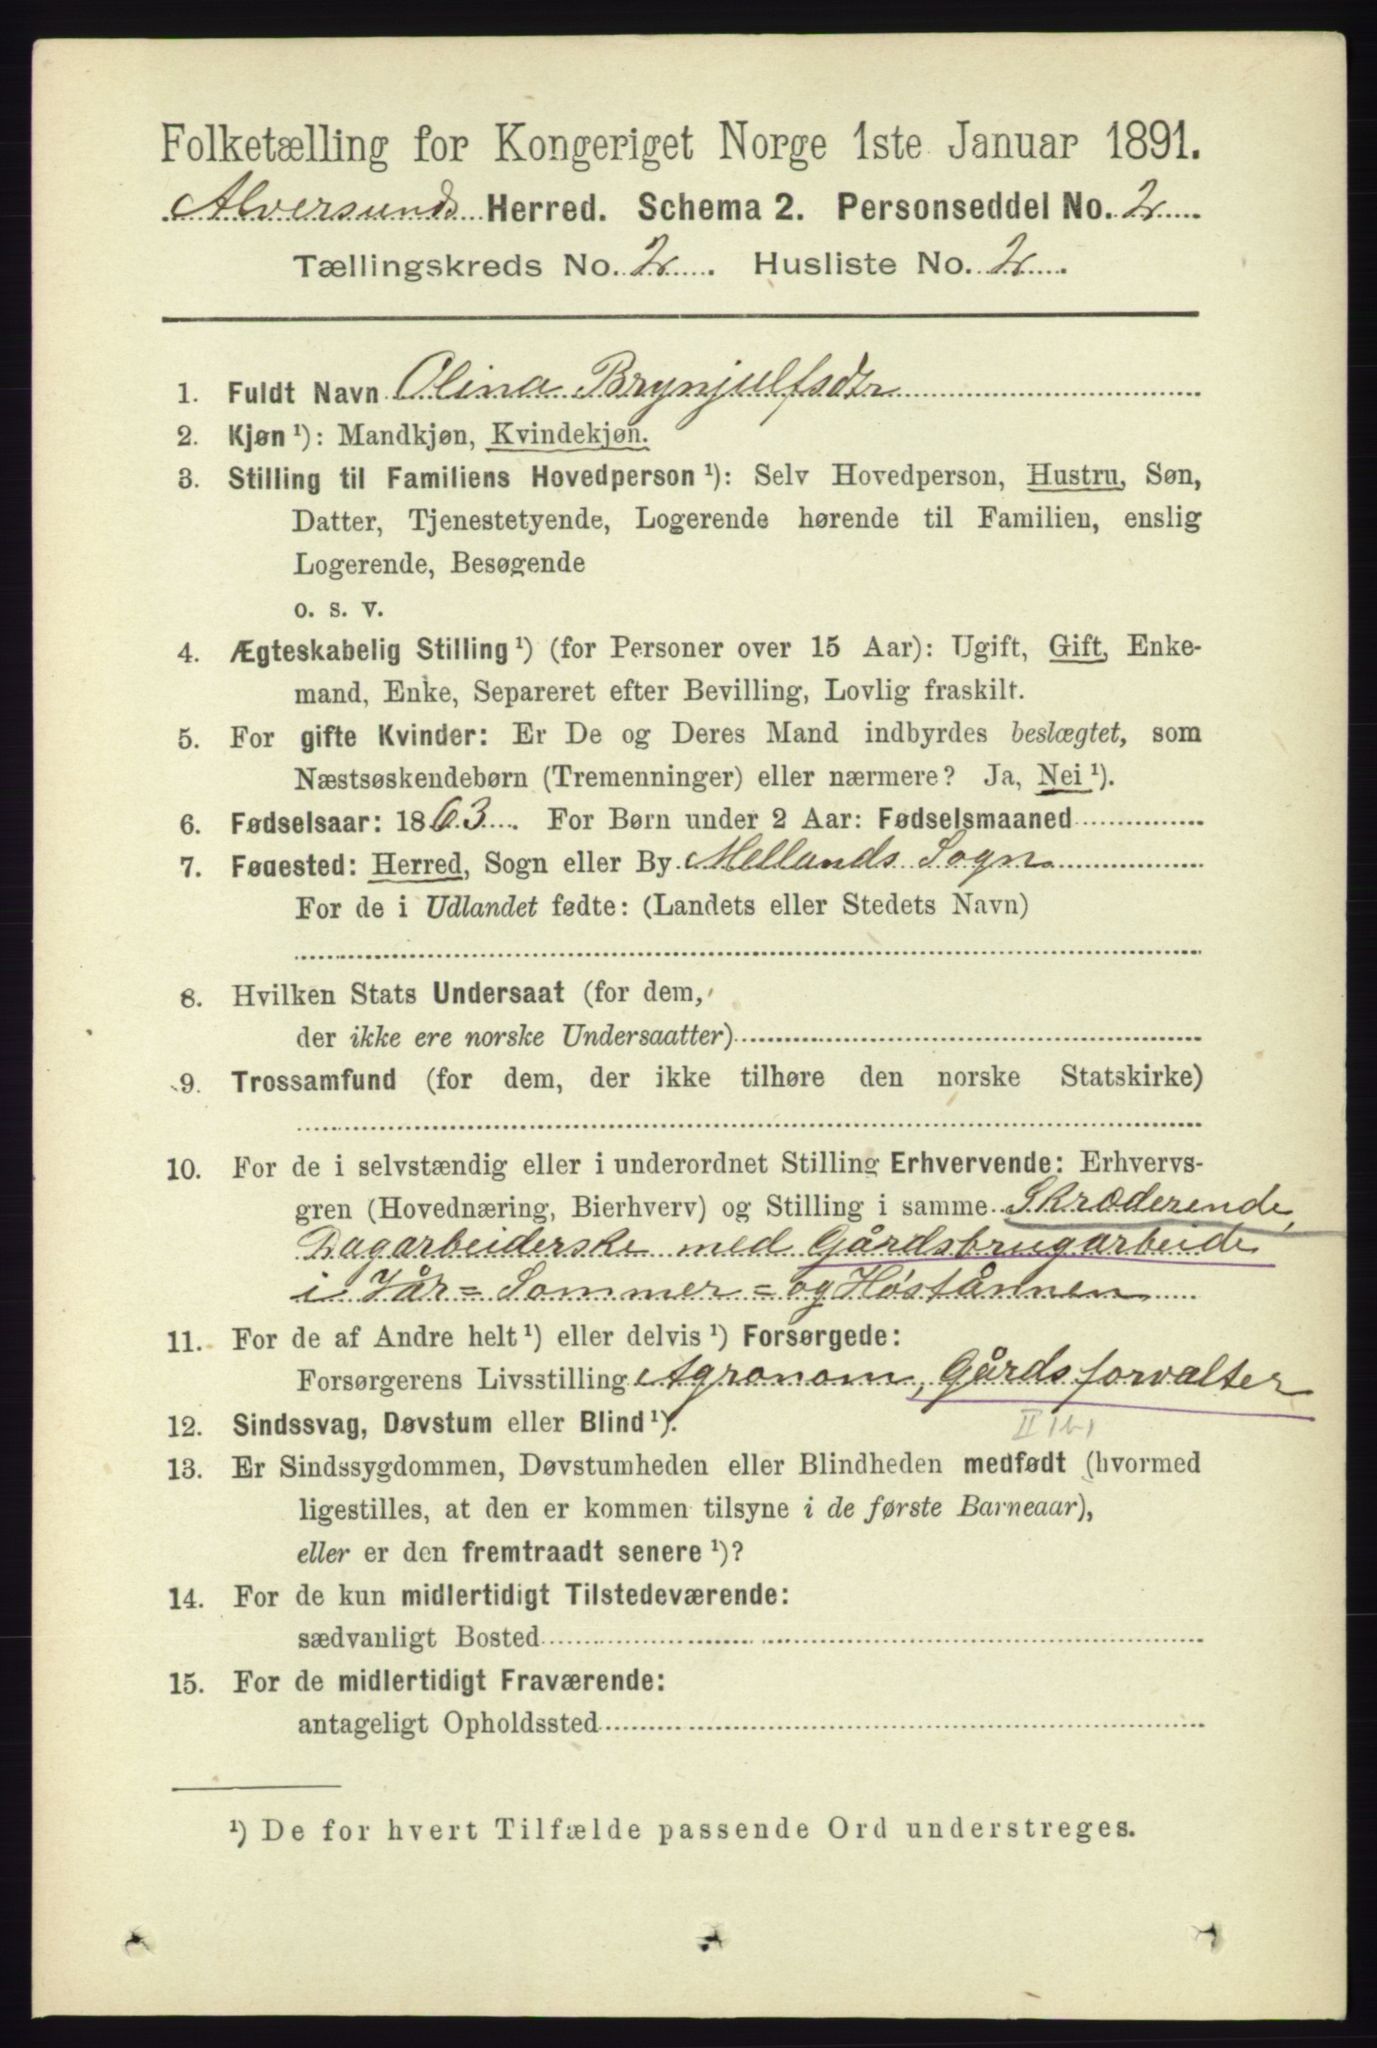 Folketælling for Kongeriget Norge 1ste Januar 1891.
Alversunds Herred. Schema 2. Personseddel No. 2
Tællingskreds No. 2. Husliste No. 2.
1. Fuldt Navn Olina Brynjulfsdtr
2. Kjøn ¹): Mandkjøn, Kvindekjøn.
3. Stilling til Familiens Hovedperson ¹): Selv Hovedperson, Hustru, Søn,
Datter, Tjenestetyende, Logerende hørende til Familien, enslig
Logerende, Besøgende
o. s. v.
4. Ægteskabelig Stilling ¹) (for Personer over 15 Aar): Ugift, Gift, Enke-
mand, Enke, Separeret efter Bevilling, Lovlig fraskilt.
5. For gifte Kvinder: Er De og Deres Mand indbyrdes beslægtet, som
Næstsøskendebørn (Tremenninger) eller nærmere? Ja, Nei ¹).
6. Fødselsaar: 1863. For Børn under 2 Aar: Fødselsmaaned
7. Fødested: Herred, Sogn eller By Mellands Sogn
For de i Udlandet fødte: (Landets eller Stedets Navn)
8. Hvilken Stats Undersaat (for dem,
der ikke ere norske Undersaatter)
9. Trossamfund (for dem, der ikke tilhøre den norske Statskirke)
10. For de i selvstændig eller i underordnet Stilling Erhvervende: Erhvervs-
gren (Hovednæring, Bierhverv) og Stilling i samme Skræderende,
Dagarbeiderske med Gårdsbrugarbeide
i Vår= Sommer= og Høstånnen
11. For de af Andre helt ¹) eller delvis ¹) Forsørgede:
Forsørgerens Livsstilling Agronom, Gårdsforvalter
12. Sindssvag, Døvstum eller Blind ¹).
13. Er Sindssygdommen, Døvstumheden eller Blindheden medfødt (hvormed
ligestilles, at den er kommen tilsyne i de første Barneaar),
eller er den fremtraadt senere ¹)?
14. For de kun midlertidigt Tilstedeværende:
sædvanligt Bosted
15. For de midlertidigt Fraværende:
antageligt Opholdssted
¹) De for hvert Tilfælde passende Ord understreges.